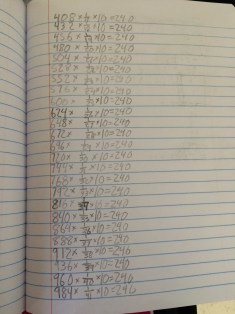 408 × 1/17 × 10 = 240
432 × 1/18 × 10 = 240
456 × 1/19 × 10 = 240
480 × 1/20 × 10 = 240
504 × 1/21 × 10 = 240
528 × 1/22 × 10 = 240
552 × 1/23 × 10 = 240
576 × 1/24 × 10 = 240
600 × 1/25 × 10 = 240
624 × 1/26 × 10 = 240
648 × 1/27 × 10 = 240
672 × 1/28 × 10 = 240
696 × 1/29 × 10 = 240
720 × 1/30 × 10 = 240
744 × 1/31 × 10 = 240
768 × 1/32 × 10 = 240
792 × 1/33 × 10 = 240
816 × 1/34 × 10 = 240
840 × 1/35 × 10 = 240
864 × 1/36 × 10 = 240
888 × 1/37 × 10 = 240
912 × 1/38 × 10 = 240
936 × 1/39 × 10 = 240
960 × 1/40 × 10 = 240
984 × 1/41 × 10 = 240